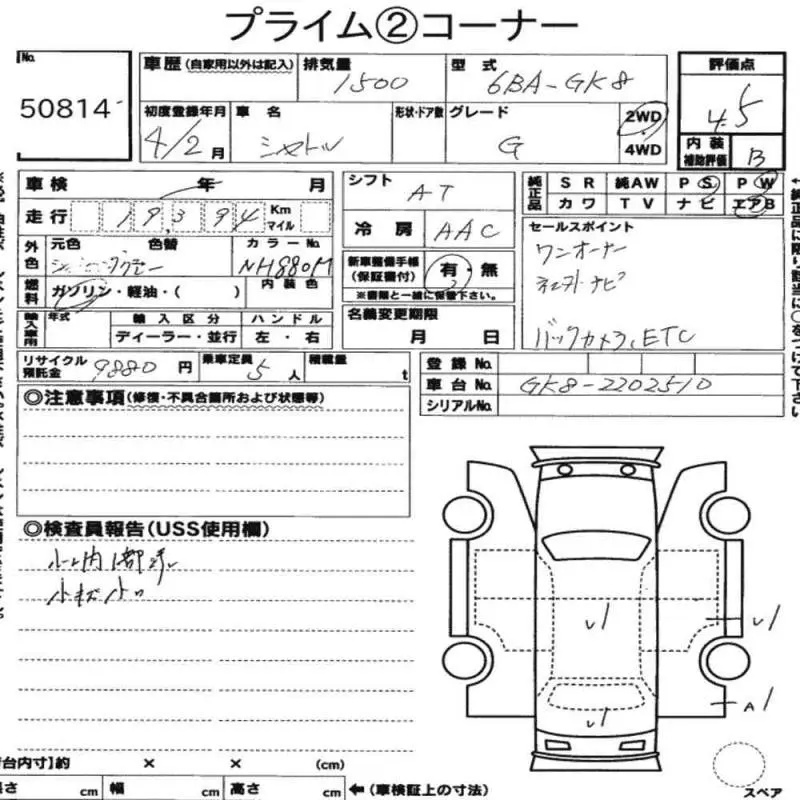 プライム②コーナー
No.
50814
車歴 (自家用以外は記入)
排気量
1500
型式
6BA-GK8
初度登録年月
4/2月
車名
シャトル
形状・ドア数
グレード
G
2WD
4WD
評価点
4.5
内装
補助評価
B
車検 年 月
走行
19,394
Km
マイル
外色
元色
色替
カラーNo.
NH880M
燃料
ガソリン・軽油・( )
内装色
輸入車用
年式
輸入区分
ハンドル
ディーラー・並行
左・右
リサイクル
預託金
9880円
乗車定員
5人
積載量
t
シフト
AT
冷房
AAC
新車整備手帳
(保証書付)
有・無
※書類と一緒に保管下さい。
名義変更期限
月 日
純正品
SR 純AW PS PW
カワ TV ナビ エアB
セールスポイント
ワンオーナー
ナビ
バックカメラ、ETC
登録No.
車台No.
GK8-2202510
シリアルNo.
◎注意事項(修復・不具合箇所および状態等)
◎検査員報告(USS使用欄)
小キズ小凹
√1
√1
√1
A1
スペア
台内寸】約 × × (cm)
長さ cm 幅 cm 高さ cm ←(車検証上の寸法)